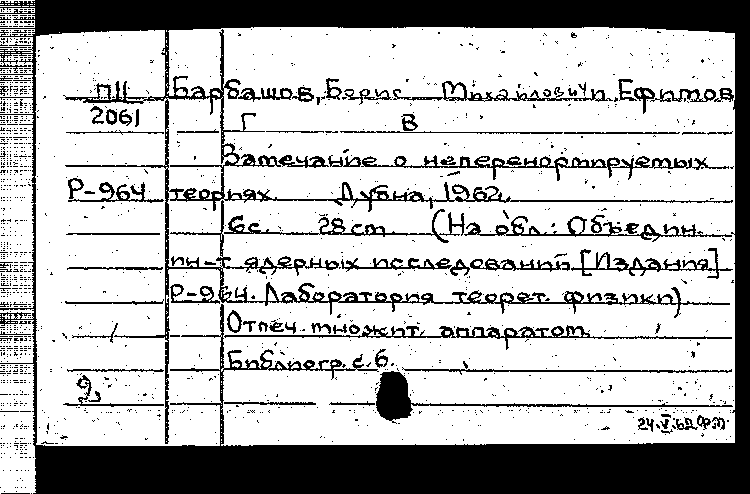 П11 Барбашов, Борис Михайлович и Ефимов,
2061 Г В
Замечание о неперенормируемых
Р-964 теориях. Дубна, 1962.
6с. 28cm (На обл.: Объедин.
ин-т ядерных исследований [Издания]
Р-964. Лаборатория теорет. физики)
Отпеч. множит. аппаратом.
Библиогр. с. 6.
2
24.V.62